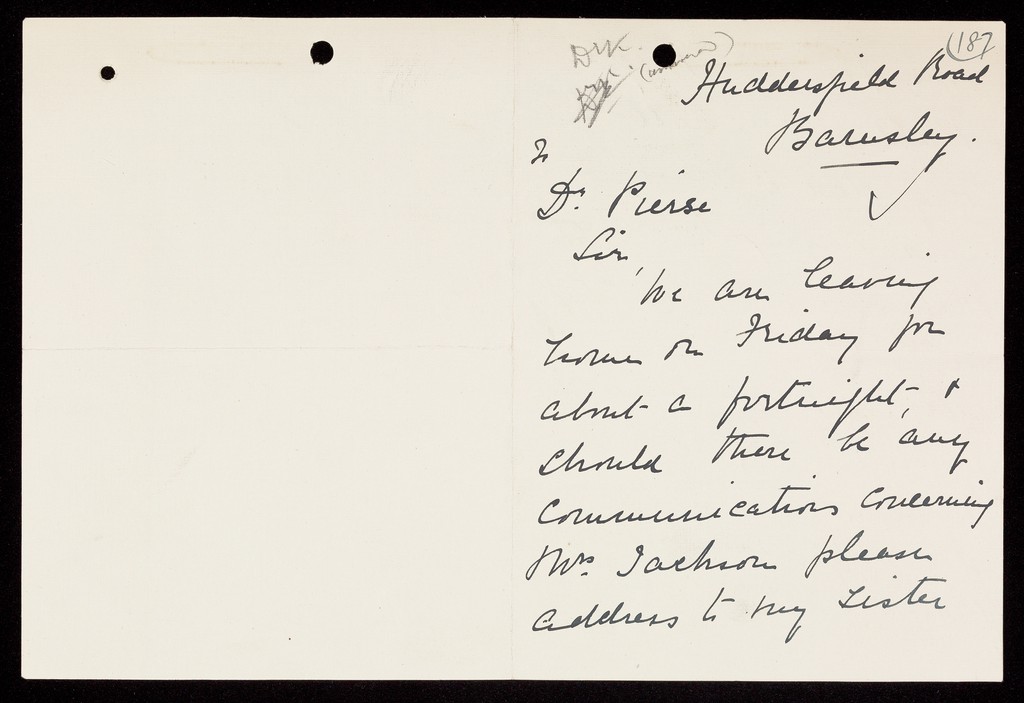 (187
Huddersfield Road
Barnsley.
To
Dr. Pierse
Sir,
We are leaving
home on Friday for
about a fortnight, &
should there be any
communications concerning
Mrs. Jackson please
address to my sister